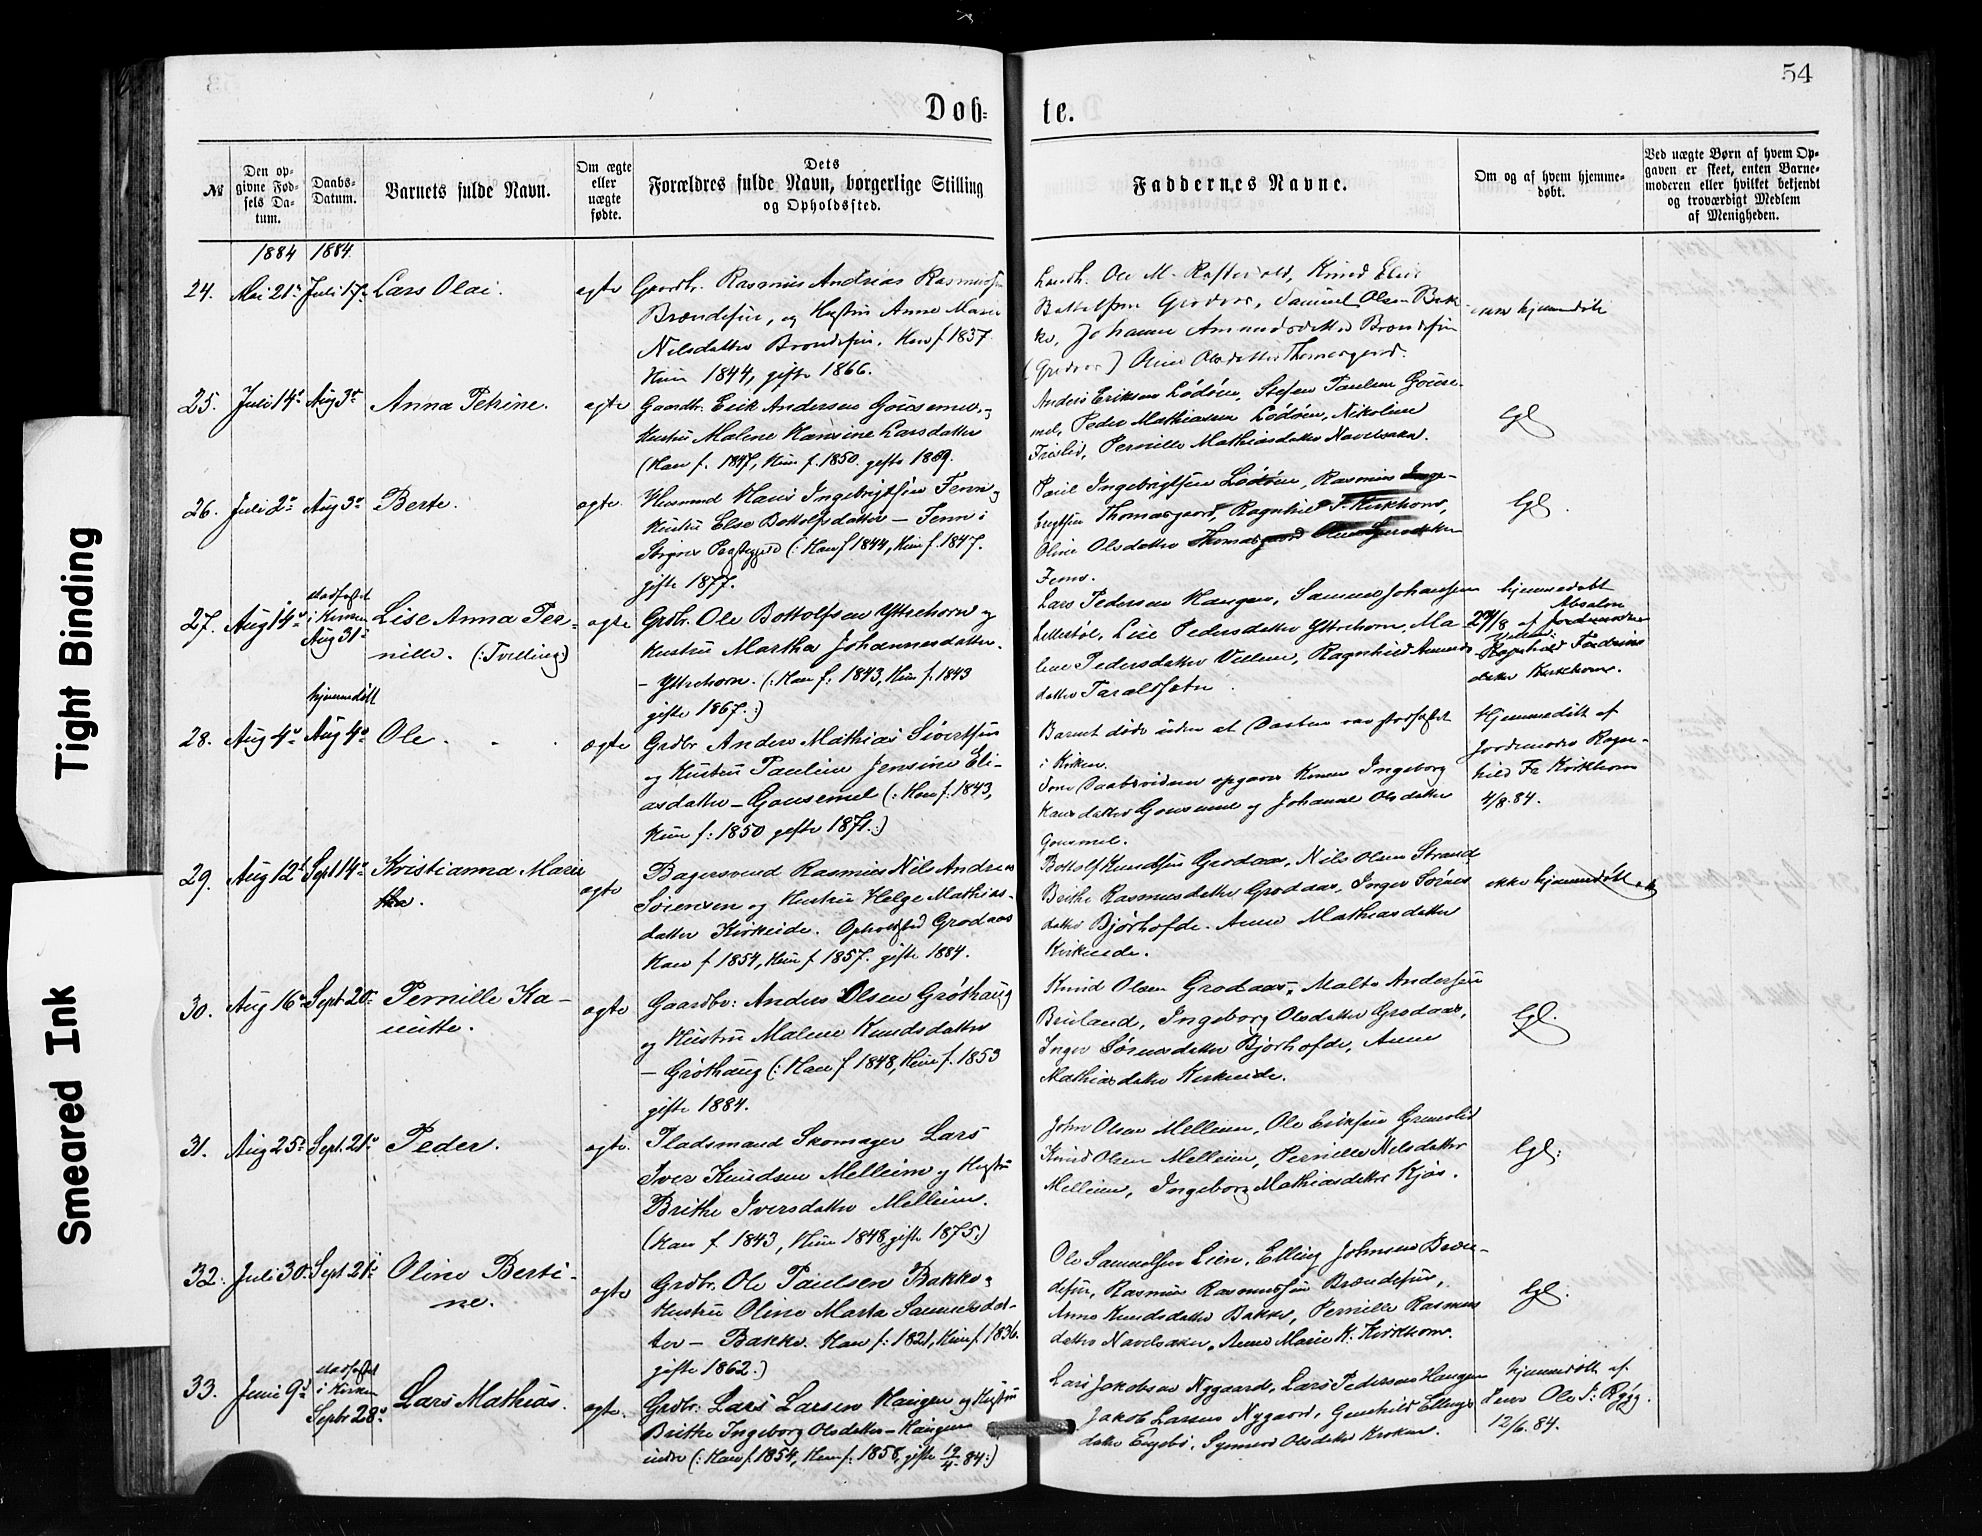 54
Døb-
te.
№
Den op-
givne Fød-
sels Da-
tum.
Daabs-
Datum.
Barnets fulde Navn.
Om ægte
eller
uægte
fødte.
Dets
Forældres fulde Navn, borgerlige Stilling
og Opholdssted.
Faddernes Navne.
Om og af hvem hjemme-
døbt.
Ved uægte Børn af hvem Op-
gaven er skeet, enten Barne-
moderen eller hvilket bekjendt
og troværdigt Medlem
af Menigheden.
1884 1884
24. Mai 21de Juli 17 Lars Olai. ægte
Gaardbr. Rasmus Andreas Rasmussen
Brændefur, og Hustru Anne Marie
Nilsdatter Brændefur. Han f 1837
Hun 1844, gifte 1866.
Landh. Ole M. Raftevold, Knud Elias
Bottolfsen Grodaas, Samuel Olsen Bak-
ke, Johanne Amundsdatter Brændefur
(Grodaas) Oline Olsdatter Thomasgard.
hjemmedøbt
25. Juli 14de Aug 3de Anna Petrine. ægte
Gaardbr. Erik Andersen Gousemel,
Hustru Malene Hansine Larsdatter
(Han f. 1847, Hun f. 1850. gifte 1869.
Anders Eriksen Lødøen, Stefen Paulsen Gouse-
mel, Peder Mathiassen Lødøen, Nikoline
Frislid, Pernille Mathiasdatter Navelsaker.
Lgl
26. Juli 2de Aug 3de Berte. ægte.
Husmand Hans Ingebrigtsen Tenn og
Hustru Else Bottolfsdatter – Tenn i
Præstegjeld (: Han f 1844, Hun f. 1847.
gifte 1877.
Paul Ingebrigtsen Lødøen, Rasmus Inge-
brigtsen Thomasgaard, Ragnhild F. Kirkhorn,
Oline Olsdatter Thomasgaard
Lgl.
27. Aug 14de stadfæstet
i Kirken
Aug 31te
Lise Anna Per-
nille. (: Tvilling)
ægte
Grdbr. Ole Bottolfsen Yttrehorn og
Hustru Martha Johannesdatter.
– Yttrehorn. (: Han f: 1843, Hun f. 1843
gifte 1867.:)
Lars Pedersen Haugen, Samuel Johansen
Lillestøl, Lise Pedersdatter Yttrehorn, Ma-
lene Pedersdatter Vollene, Ragnhild Amunds
datter Taraldsæter.
hjemmedøbt
29/8 af Jordemoder
Ragnhild Fredriks
datter Kirkhorn.
28. Aug 4de hjemmedøbt
Aug 4de Ole ægte
Grdbr Anders Mathias Sivertsen
og Hustru Pauline Jensine Eli-
asdatter – Gousemel (: Han f. 1843,
Hun f: 1850 gifte 1871:)
Barnet døde uden at Daaben var stadfæstet
i Kirken.
Som Daabsvidner opgaves Konen Ingeborg
Hansdatter Gousemel og Johanne Olsdatter
Gousmel.
Hjemmedøbt af
Jordemoder Ragn-
hild Fr Kirkhorn
4/8.84.
29. Aug 12te Sept 14de Kristianna Marie ægte
Bagersvend Rasmus Nils Andreas
Sørensen og Hustru Helge Mathias-
datter Kirkeide. Opholdsted Grodaas
Han f 1854, Hun f. 1857. gifte 1884.
Bottolf Knudsen Grodaas, Nils Olsen Strand
Brithe Rasmusdatter Grodaas, Inger Sørens
datter Bjørhofde. Anne Mathiasdatter
Kirkeide.
ikke hjemmedøbt
30. Aug 16de Sept. 20de Pernille Ka-
nutte.
ægte
Gaardbr: Anders Olsen Grøthaug
og Hustru Malene Knudsdatter
– Grøthaug (: Han f 1848, Hun f. 1853
gifte 1884.
Knud Olsen Grodaas, Malte Andersen
Bruland, Ingeborg Olsdatter Grodaas,
Inger Sørensdatter Bjørhofde, Anne
Mathiasdatter Kirkeide.
Lgl.
31. Aug 25de Sept. 21de Peder. ægte.
Pladsmand Skomager Lars
Iver Knudsen Melleim og Hustru
Brithe Iversdatter Melleim.
(Han f 1843, Hun 1848, gifte 1875:)
John Olsen Melleim, Ole Eriksen Grimolid
Knud Olsen Melleim, Pernille Nilsdatter
Melleim, Ingeborg Mathiasdatter Kjøs.
Lgl:
32. Juli 30. Sept 21de Oline Berti-
ne.
ægte
Grdbr. Ole Paulsen Bakke og
Hustru Oline Marta Samuelsdat-
ter – Bakke. Han f: 1821, Hun f. 1836.
gifte 1862.)
Ole Samuelsen Lien, Elling Johnsen Bræn-
defur, Rasmus Rasmussen Brændefur,
Anne Knudsdatter Bakke, Pernille Rasmus
datter Navelsaker, Anne Marie K. Kirkhorn.
Lgl.
33. Juni 9de stadfæstet
i Kirken
Septr 28de
Lars Mathias. ægte.
Grdbr. Lars Larsen Haugen og Hustru
Brithe Ingeborg Olsdatter – Haugen
indre (: Han f. 1854, Hun f: 1858, gifte 19/4 84:)
Lars Jakobsen Nygaard, Lars Pedersen Haugen
Jakob Larsen Nygaard, Gunhild Ellings
datter Engebø, Synneve Olsdatter Kroken.
hjemmedøbt af
Lærer Ole S. Rygg.
12/6.84.
Tight Binding
Smeared Ink